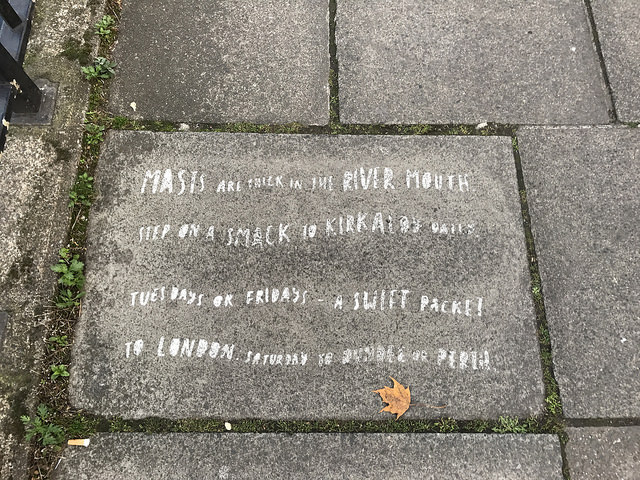 MASTS ARE THICK IN THE RIVER MOUTH
STEP ON A SMACK TO KIRKALDY DAILY.
TUESDAYS OR FRIDAYS - A SWIFT PACKET
TO LONDON. SATURDAY TO DUNDEE OR PERTH.